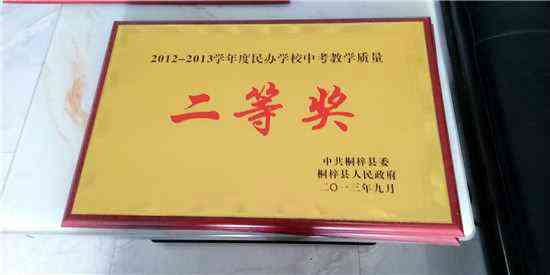 2012-2013学年度民办学校中考教学质量
二等奖
中共桐梓县委
桐梓县人民政府
二〇一三年九月